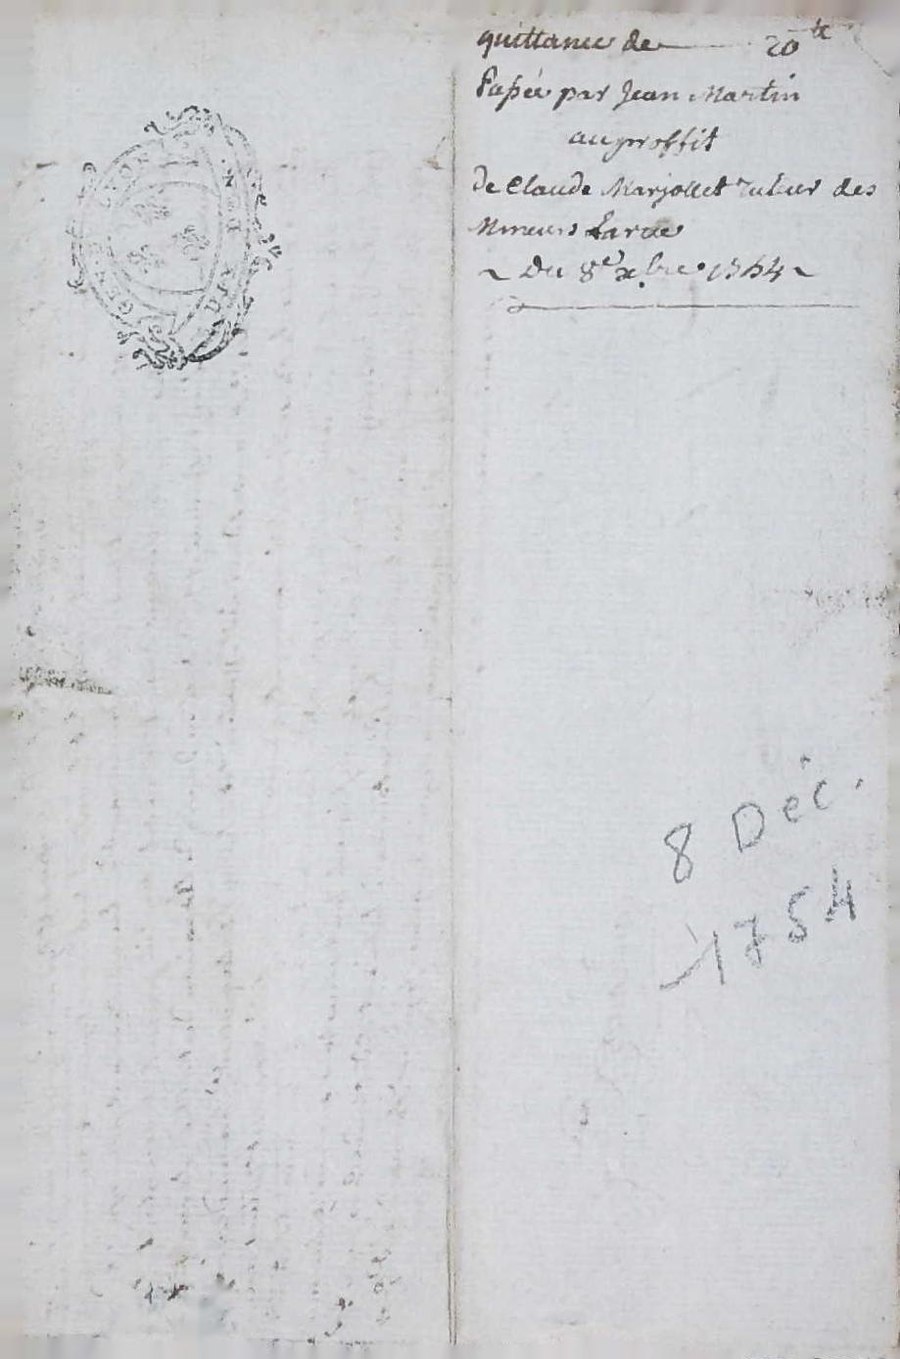 quittance de 20 lt
Passée par Jean Martin
au proffit
de Claude Marjollet tuteur des
Mineurs Larue
~ Du 8e xbre 1754 ~
8 Déc.
1754
GENER LYON